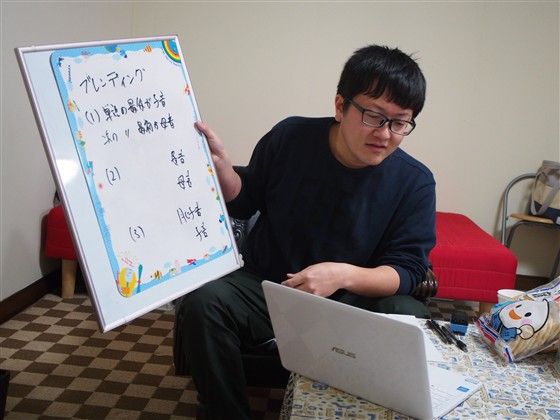 ブレンディング
(1) 単語の最後が子音
次の 〃 最初が母音
(2) 子音
母音
(3) 同じ子音
子音
ASUS